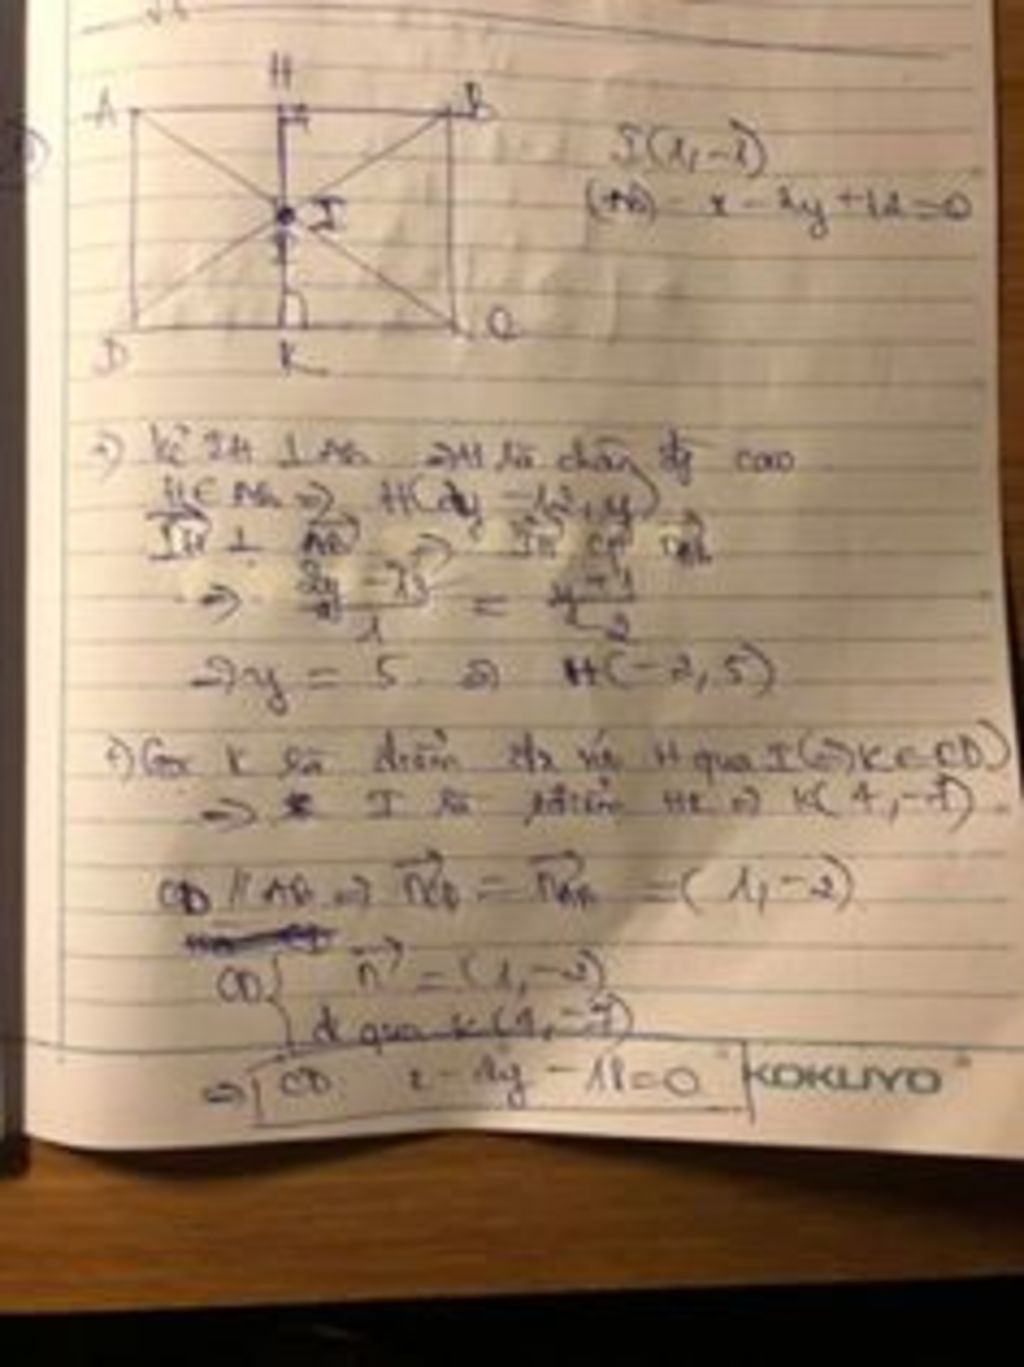 H
A B
I(1,-1)
(AB) - x - 2y + 12 = 0
I
D K C
+) Kẻ IH ⊥ AB ⇒ H là chân đg cao
H ∈ AB ⇒ H(2y - 12, y)
IH ⊥ AB
⇒ (2y - 13)/1 = (y + 1)/-2
⇒ y = 5 ⇒ H(-2, 5)
+) Gọi K là điểm đx với H qua I (⇒ K ∈ CD)
⇒ I là HK ⇒ K(4, -7)
CD // AB ⇒ n⃗CD = n⃗AB = (1, -2)
CD { n⃗ = (1, -2)
đi qua K(4, -7)
⇒ CD x - 2y - 18 = 0 KOKUYO